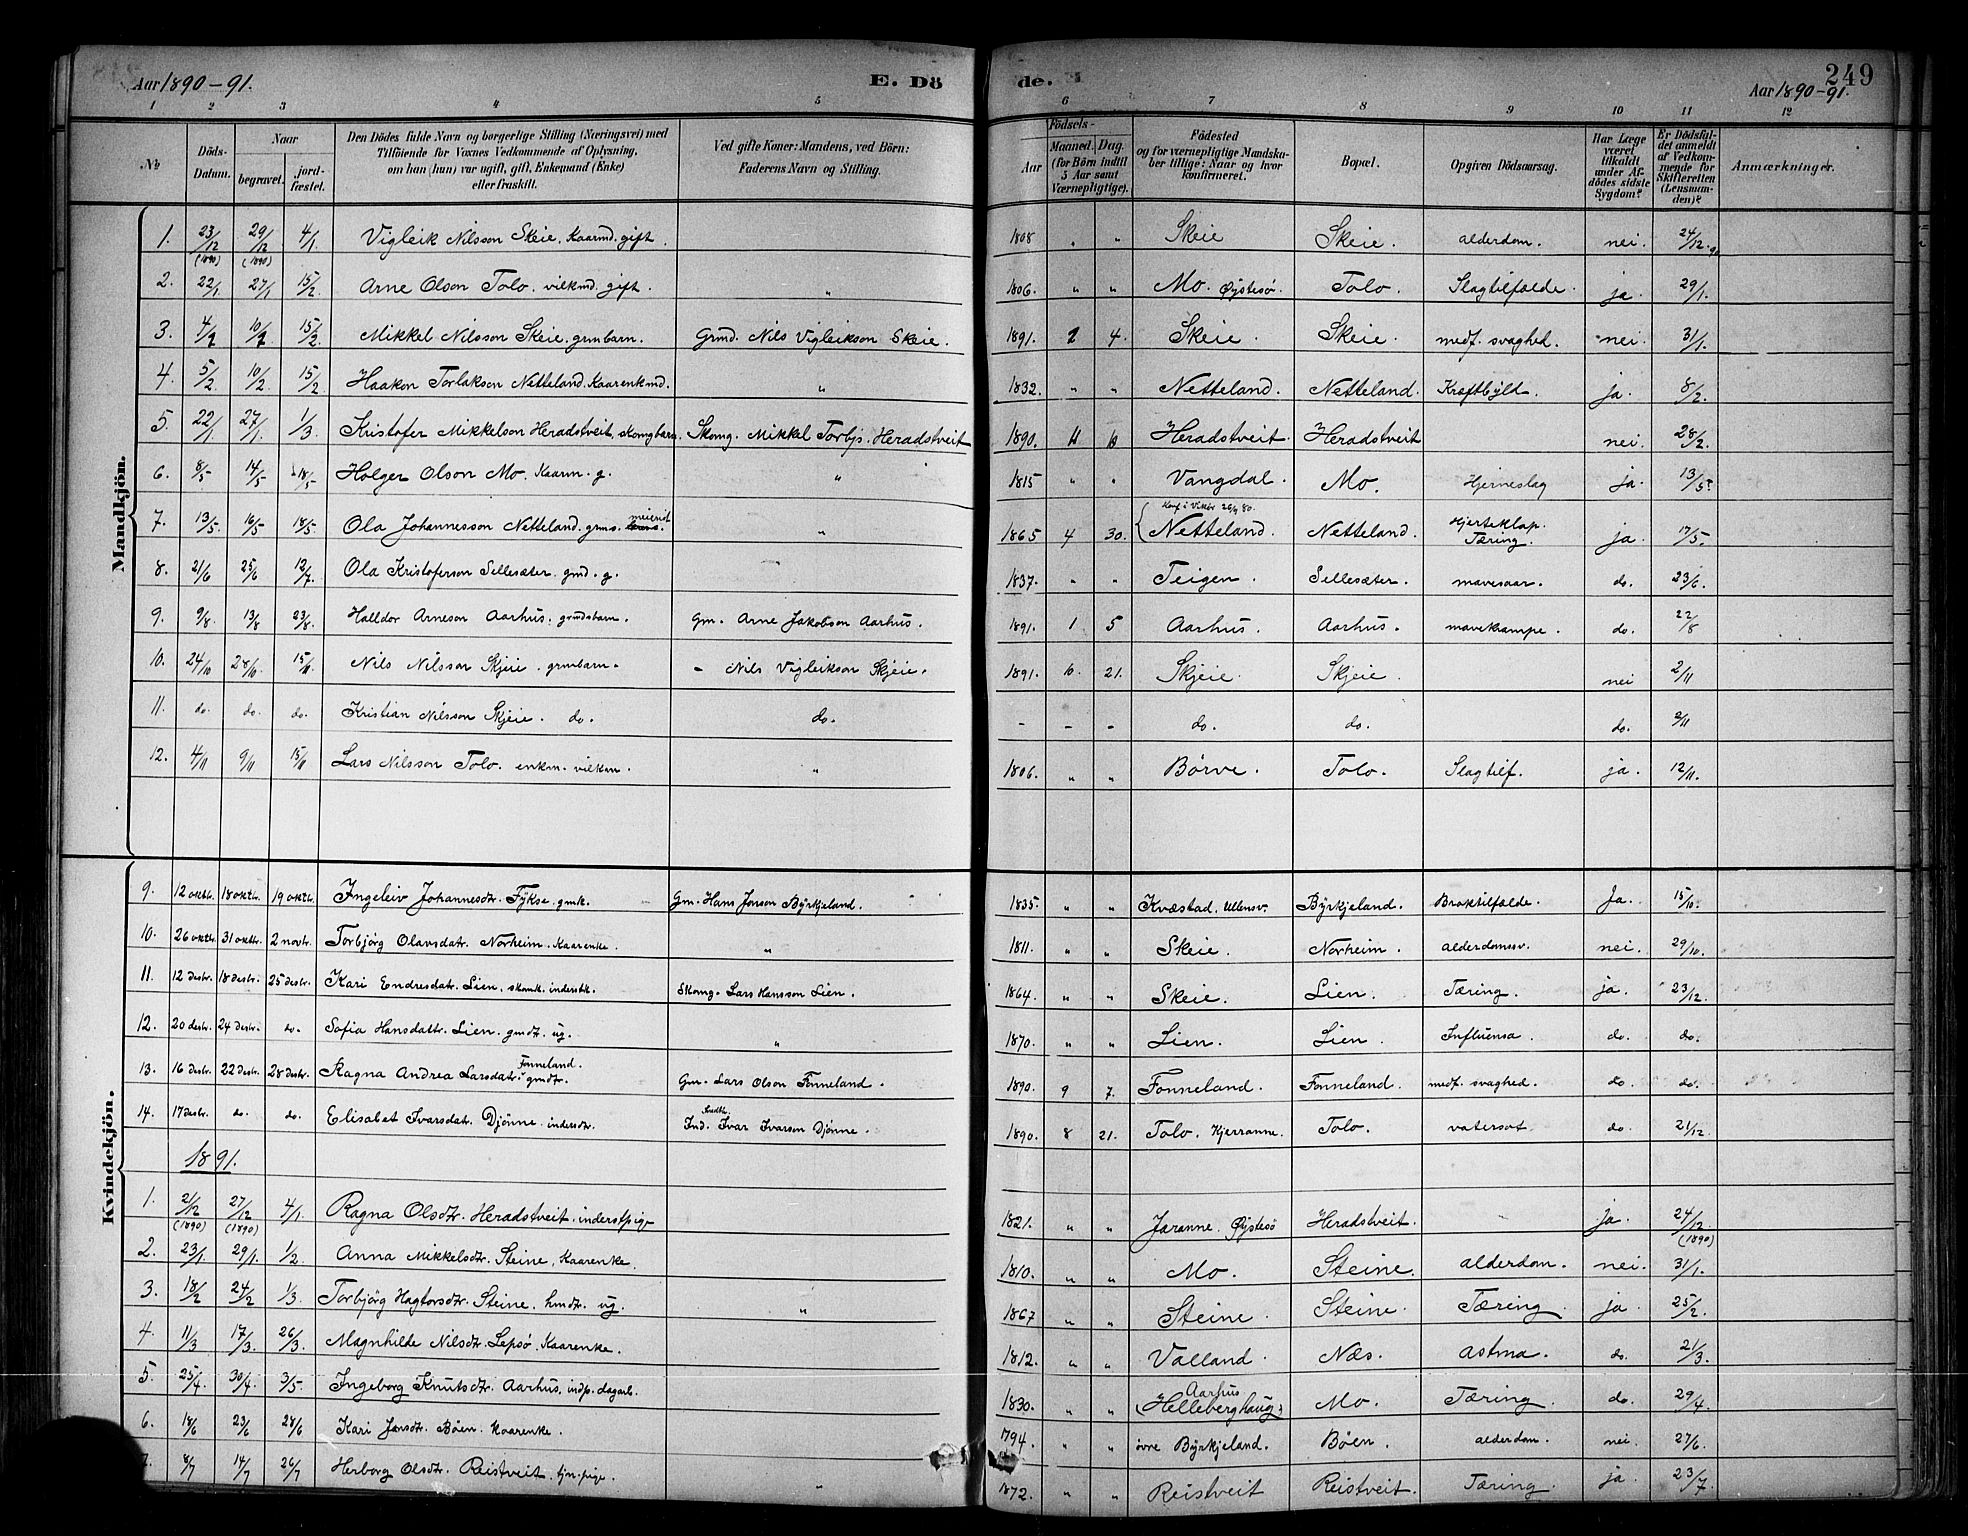 Aar 1890-91. E. Dö de. 249
Aar 1890-91.
1 2 3 4 5 6 7 8 9 10 11 12
No Döds-Datum. Naar begravet. jordfæstet. Den Dödes fulde Navn og borgerlige Stilling (Næringsvei) med Tilföiende for Voxnes Vedkommende af Oplysning, om han (hun) var ugift, gift, Enkemand (Enke) eller fraskilt. Ved gifte Koner: Mandens, ved Börn: Faderens Navn og Stilling. Födsels- Aar Maaned. Dag. (for Börn indtil 5 Aar samt Værnepligtige). Födested og for værnepligtige Mandskaber tillige: Naar og hvor konfirmeret. Bopæl. Opgiven Dödsaarsag. Har Læge været tilkaldt under Afdödes sidste Sygdom? Er Dödsfaldet anmeldt af Vedkommende for Skifteretten (Lensmanden)? Anmærkninger.
Mandkjön.
1. 23/12 (1890) 29/12 (1890) 4/1. Vigleik Nilsson Skeie. Kaarmd. gift. 1808 " " Skeie Skeie. alderdom. nei. 24/12 90
2. 22/1 27/1 15/2. Arne Olson Tolo. vilkmd. gift. " 1806. " " Mo. Øystesø. Tolo. Slagtilfælde. ja. 29/1.
3. 4/2 10/2 15/2. Mikkel Nilsson Skeie. grmbarn. Grmd. Nils Vigleikson Skeie. 1891. 2 4. Skeie. Skeie. medf. svaghed. nei. 31/1.
4. 5/2 10/2 15/2. Haakon Torlakson Netteland. Kaarenkmd. " 1832. " " Netteland. Netteland. Kræftbyld. ja. 8/2.
5. 22/1 27/1 1/3 Kristofer Mikkelson Heradstveit, skomgbarn. Skomg. Mikkel Torbjs. Heradstveit 1890. Heradstveit. Heradstveit nei. 28/2.
6. 8/5 14/5 18/5 Holger Olson Mo. Kaarm. g. " 1815 " " Vangdal. Mo. Hjerneslag ja. 13/5.
7. 13/5. 16/5 18/5 Ola Johannesson Netteland. grms. meierist " 1865 4 30. Konf. i Vikør 26/9 80. Netteland. Netteland. Hjerteklap. Tæring. ja. 17/5.
8. 21/6 25/6 12/7. Ola Kristoferson Sellesæter. gmd. g. 1837. " " Teigen. Sellesæter. mavesaar. do. 23/6.
9. 9/8. 13/8 23/8. Halldor Arneson Aarhus. grmdsbarn. Gm. Arne Jakobson Aarhus. 1891. 1 5 Aarhus. Aarhus. mavekrampe. do. 22/8
10. 24/10 28/10. 15/11. Nils Nilsson Skjeie. grmbarn. - Nils Vigleikson Skjeie. 1891. 10. 21. Skjeie. Skjeie. nei 2/11
11. do. do. do. Kristian Nilsson Skjeie. do. do. - - - do. do. do. 2/11
12. 4/11 9/11 15/11 Lars Nilsson Tolo. enkm. vilkm. " 1806. " " Børve. Tolo. Slagtilf. ja. 12/11.
Kvindekjön.
9. 12 oktbr. 18 oktbr. 19 oktbr. Ingeleiv Johannesdtr. Fykse. gmk. Gm. Hans Jonson Byrkjeland. 1835. " " Kvæstad. Ullensv. Byrkjeland. Broktilfælde. Ja. 15/10.
10. 26 oktbr. 31 oktbr. 2 novbr. Torbjörg Olavsdatr. Norheim. Kaarenke. " 1811. " " Skeie. Norheim. alderdomssv. nei. 29/10.
11. 12 desbr. 18 desbr. 25 desbr. Kari Endresdatr. Lien. skomk. inderstk. Skomg. Lars Hansson Lien. 1864. " " Skeie. Lien. Tæring. ja. 23/12.
12. 20 desbr. 24 desbr. do. Sofia Hansdattr. Lien. gmdtr. ug. " 1870. " " Lien. Lien. Influensa do. do.
13. 16 desbr. 22 desbr. 28 desbr. Ragna Andrea Larsdatr. Fonneland. gmdtr. Gm. Lars Olson Fonneland. 1890. 9 7. Fonneland. Fonneland. medf. svaghed. do do.
14. 17 desbr. do. do. Elisabet Ivarsdatr. Djönne. indersdtr. Ind. Ivar Ivarson Djønne. 1890. 8 21. Tolo. Kjerranne. Tolo. vatersot do. 21/12.
1891.
1. 21/12 (1890) 27/12 (1890) 4/1. Ragna Olsdtr. Heradstveit. inderstpig- 1821. " " Jaranne. Øystesø Heradstveit. ja. 24/12. (1890)
2. 23/1. 29/1. 1/2 Anna Mikkelsdtr. Steine, Kaarenke. 1810. " " Mo. Steine. alderdom. nei. 31/1.
3. 18/2 24/2 1/3. Torbjörg Hagtorsdtr. Steine. hmdtr. ug. " 1867 " " Steine. Steine. Tæring. ja. 25/2.
4. 11/3 17/3. 26/3. Magnhilde Nilsdtr. Lepsø. Kaarenke. 1812. " " Valland. Næs. astma. do. 21/3.
5. 25/4 30/4. 3/5. Ingeborg Knutsdtr. Aarhus, indp. dagarb. 1830. " " Aarhus (Helleberghaug) Mo. Tæring. do. 29/4.
6. 18/6 23/6 28/6 Kari Jonsdtr. Böen. Kaarenke. 1794. " " övre Byrkjeland. Böen. alderdom. nei. 27/6.
7. 8/7 14/7 26/7 Herborg Olsdtr. Reistveit. tjn. pige. " 1872. " " Reistveit Reistveit. Tæring. ja. 23/7.